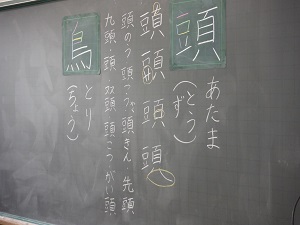 頭
あたま
(とう)
ず
頭 頭 頭 頭
頭のう 頭こうべ 頭きん 先頭
九頭 頭 双頭 頭こつ がい頭
鳥
とり
(ちょう)